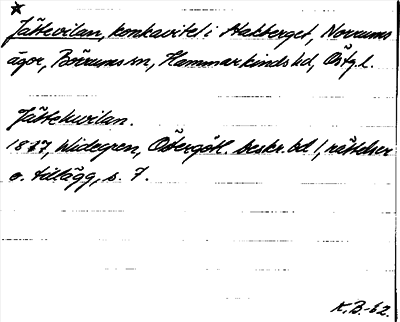 Jättevilan, konkavitet i Stakberget, Norrums
ägor, Börrums sn, Hammarkinds hd, Östg.l.
Jättehvilan.
1837, Widegren, Östergötl. beskr. bd 1, rättelser
o. tillägg, s. 7.
K.B.-62.